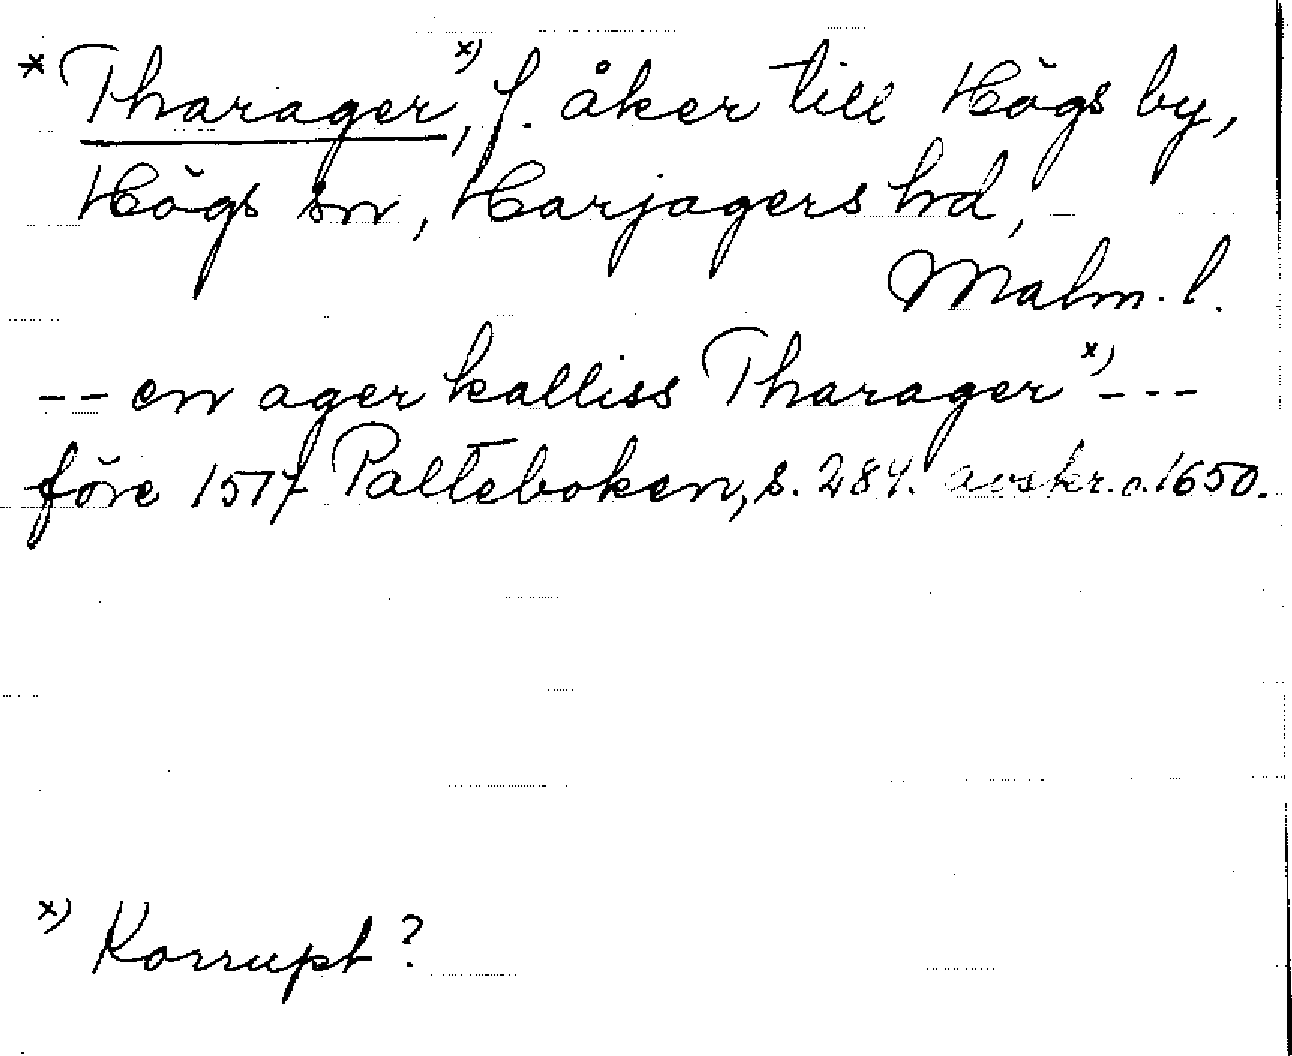 * Tharager, x) f. åker till Högs by,
Högs sn, Harjagers hd,
Malm. l.
-- en ager kalliss Tharager x) ---
före 1517 Palteboken, s. 284. avskr. c. 1650.
x) Korrupt?